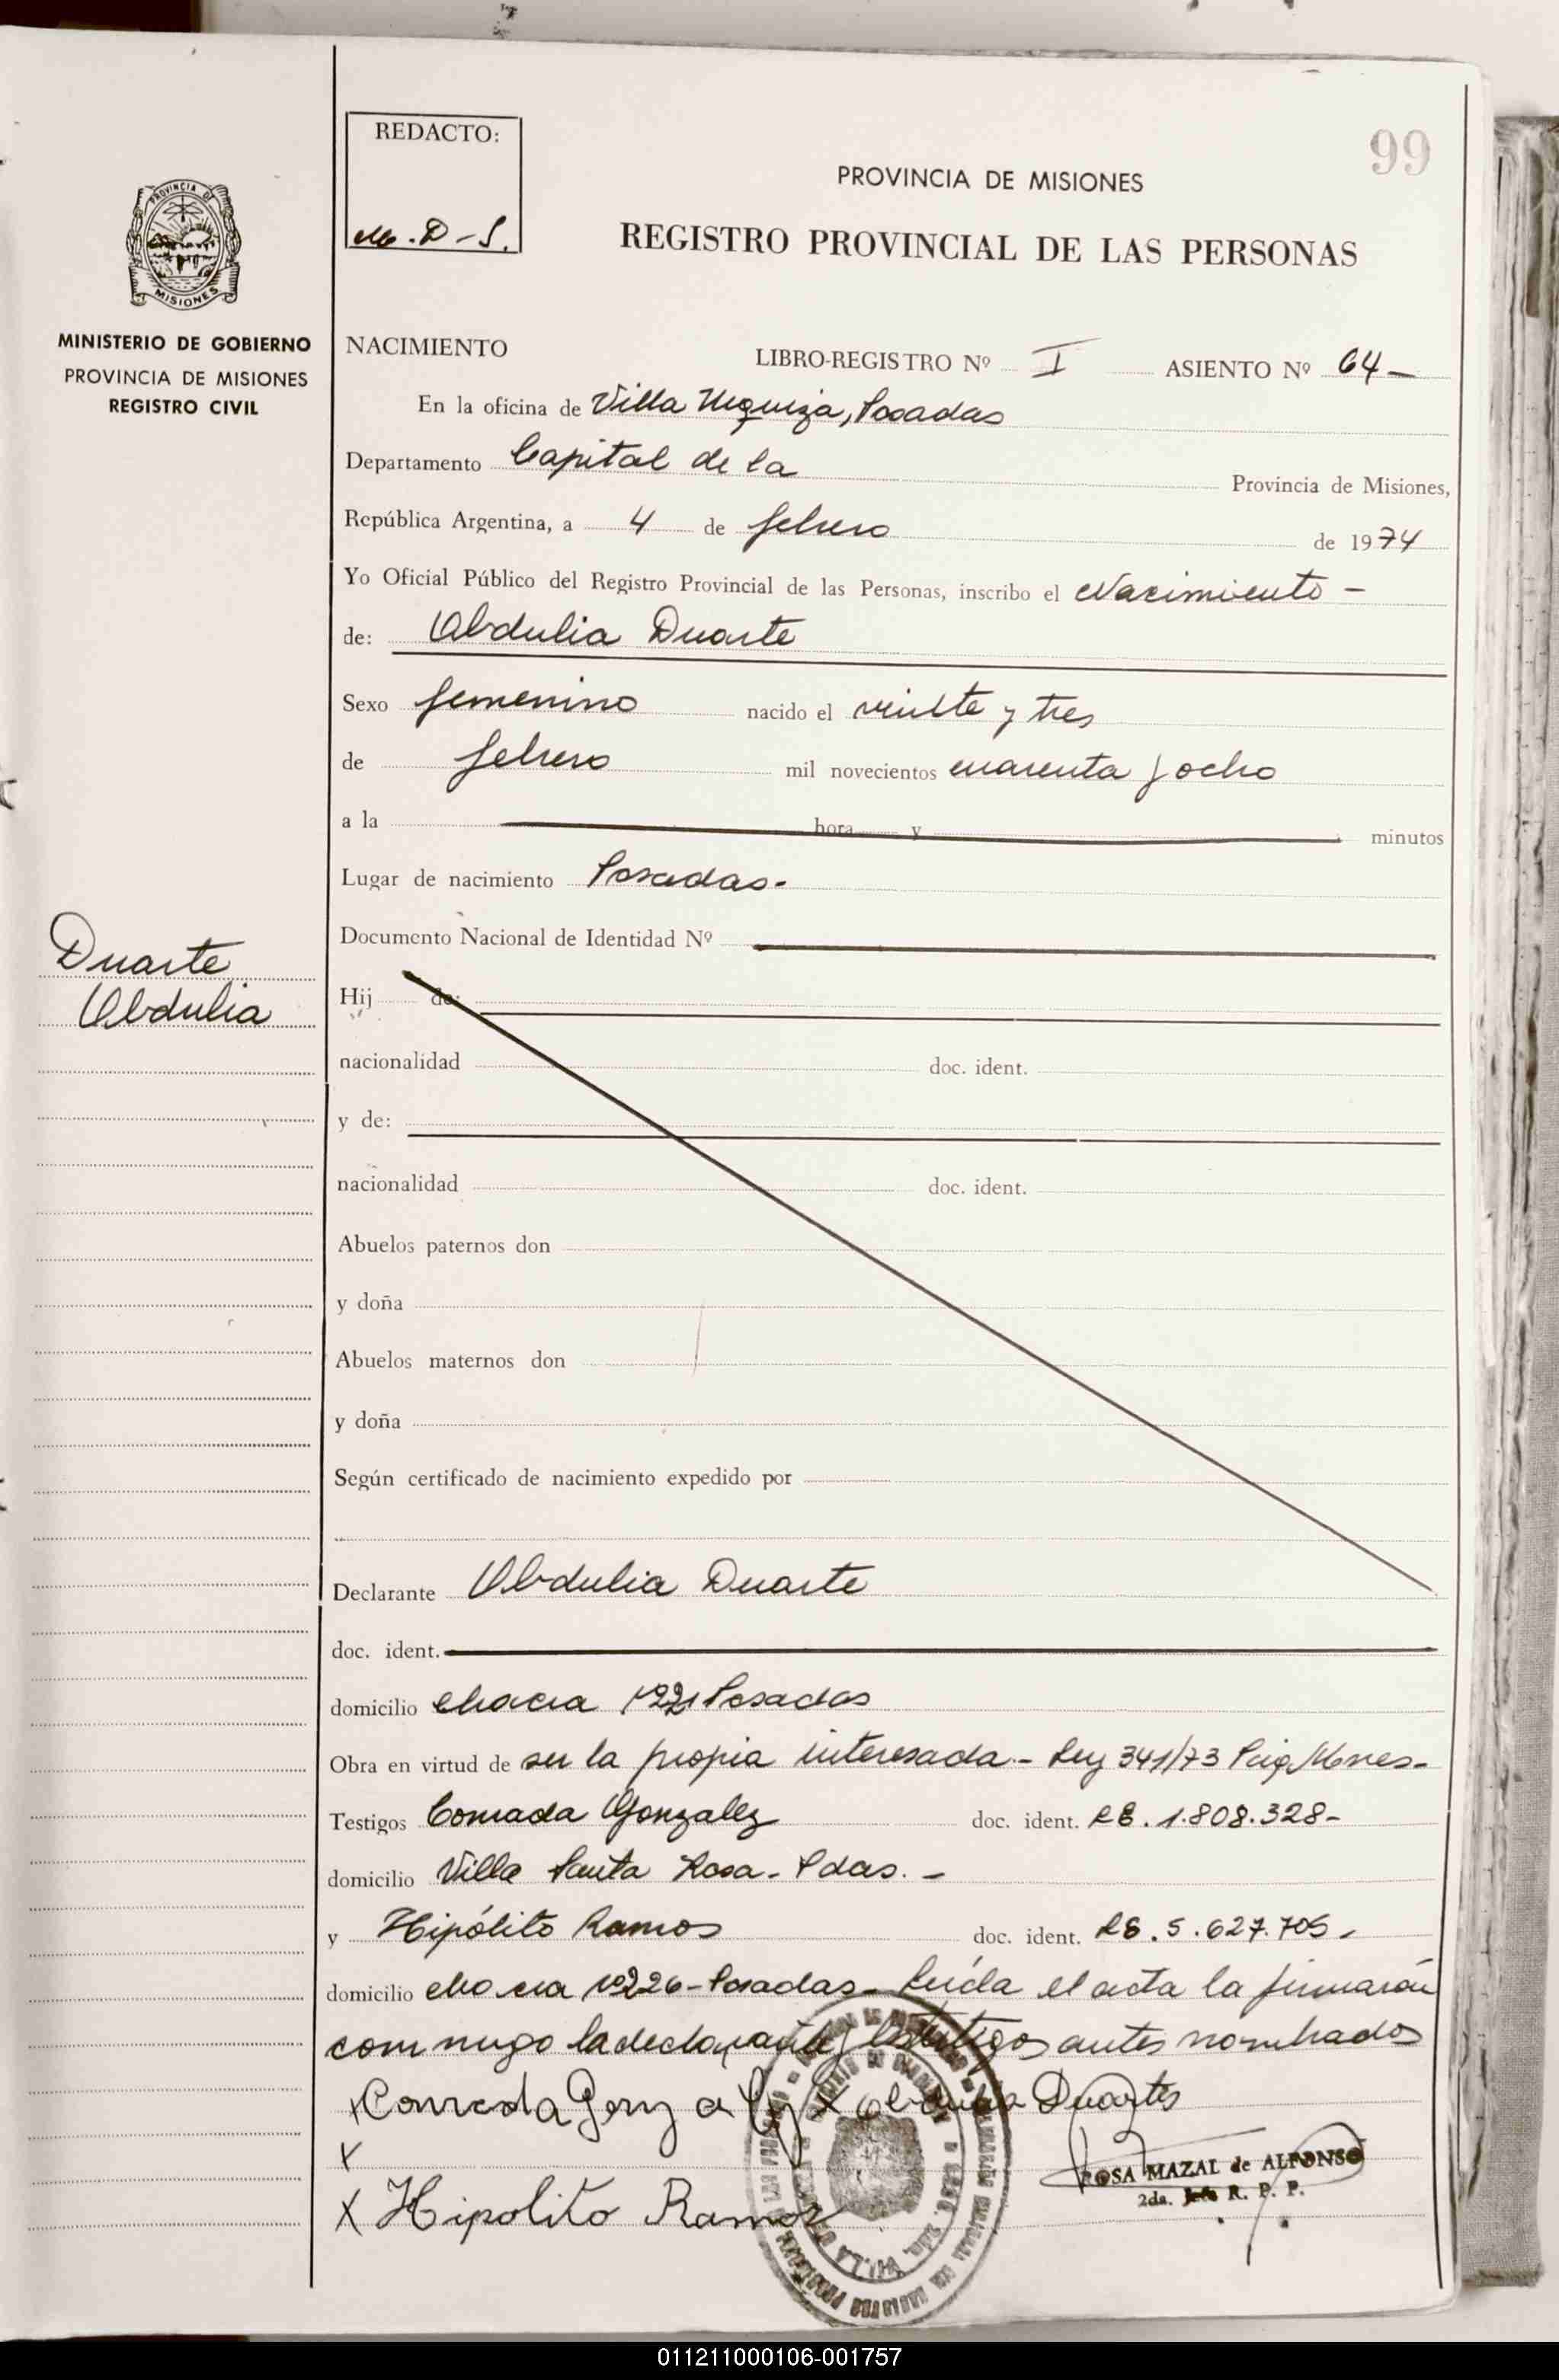 REDACTO:
M.D-S.
99
PROVINCIA DE MISIONES
REGISTRO PROVINCIAL DE LAS PERSONAS
PROVINCIA DE
MISIONES
MINISTERIO DE GOBIERNO
PROVINCIA DE MISIONES
REGISTRO CIVIL
NACIMIENTO LIBRO-REGISTRO Nº I ASIENTO Nº 64-
En la oficina de Villa Urquiza, Posadas
Departamento Capital de la Provincia de Misiones,
República Argentina, a 4 de febrero de 1974
Yo Oficial Público del Registro Provincial de las Personas, inscribo el Nacimiento -
de: Obdulia Duarte
Sexo femenino nacido el veinte y tres
de febrero mil novecientos cuarenta y ocho
a la hora y minutos
Lugar de nacimiento Posadas.
Documento Nacional de Identidad Nº
Duarte
Obdulia
Hij de:
nacionalidad doc. ident.
y de:
nacionalidad doc. ident.
Abuelos paternos don
y doña
Abuelos maternos don
y doña
Según certificado de nacimiento expedido por
Declarante Obdulia Duarte
doc. ident.
domicilio chacra Posadas
Obra en virtud de ser la propia interesada.- Ley 341/73
Testigos Conrada Gonzalez doc. ident. 1.808.328-
domicilio Villa Santa Rosa - Pdas. -
y Hipólito Ramos doc. ident. 5.627.705-
domicilio chacra Nº226-Posadas- Leída el acta la firmarán
conmigo la declarante y testigos antes nombrados
x Conrada Gonzalez x Obdulia Duarte
x
ROSA MAZAL de ALFONSO
2da. Jefe R. P. P.
x Hipolito Ramos
011211000106-001757